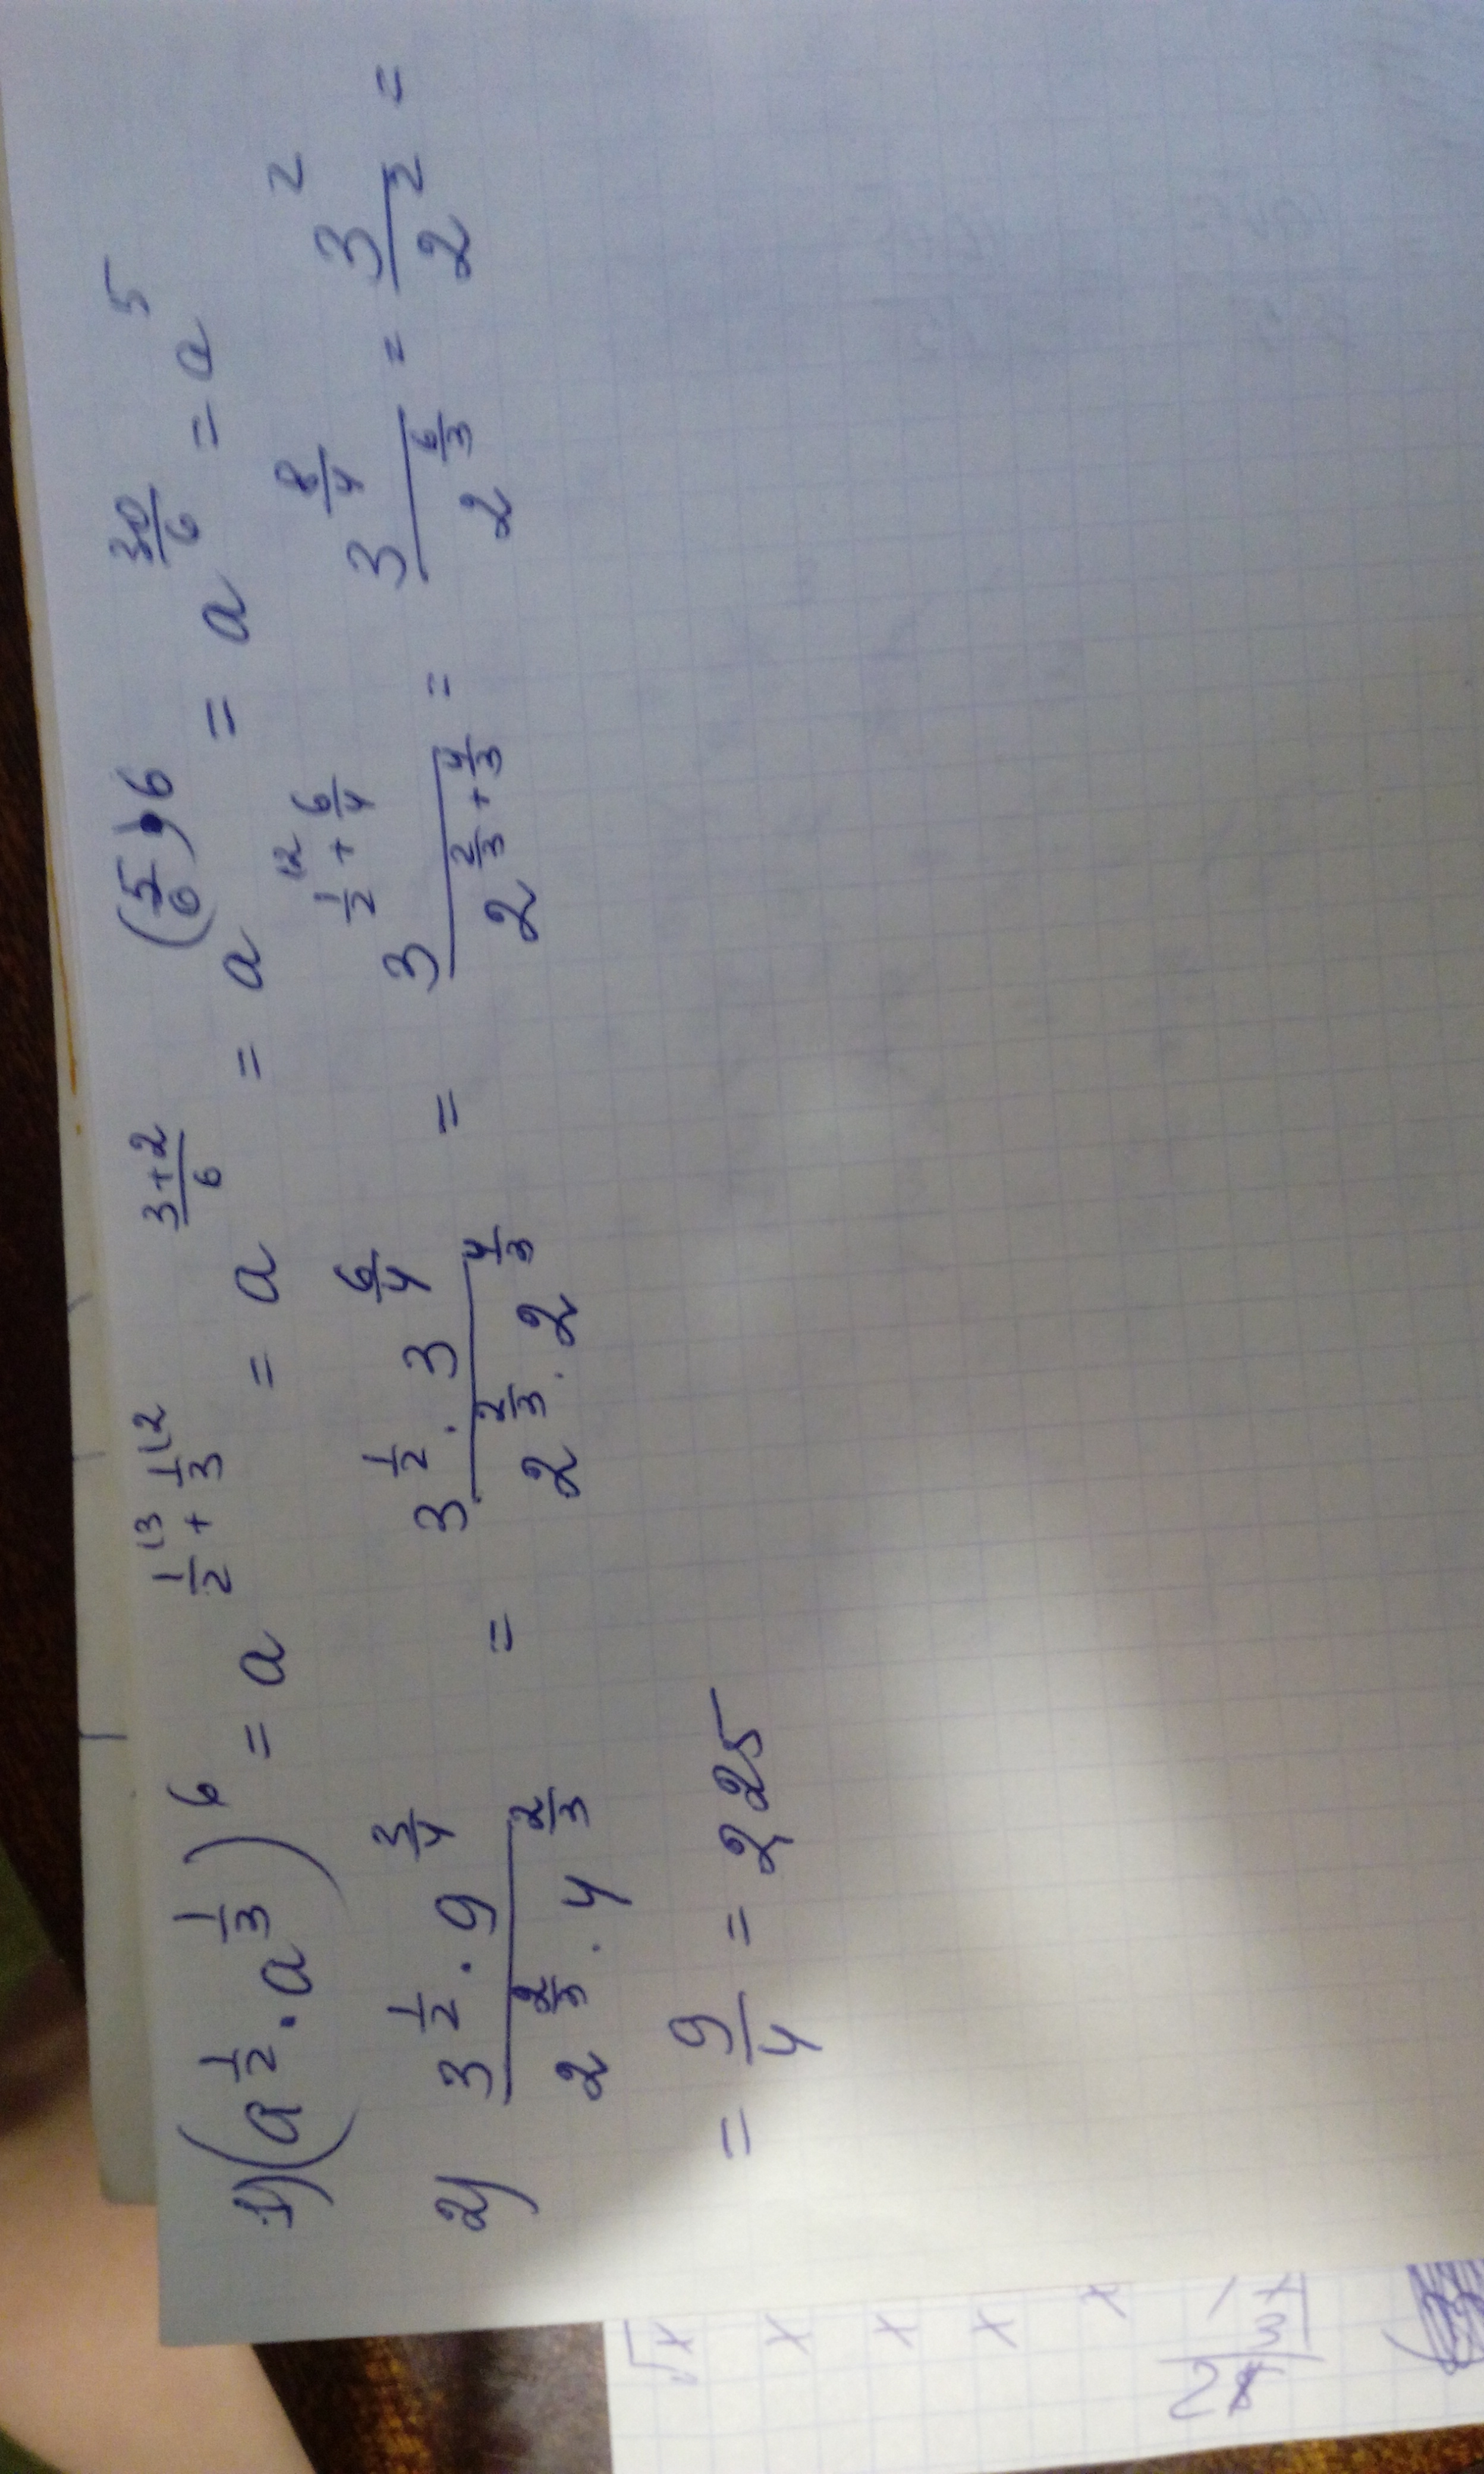 1) (a^{1/2} · a^{1/3})^6 = a^{1/2 (3 + 1/3 (2} = a^{(3+2)/6} = a^{(5/6)·6} = a^{30/6} = a^5
2) (3^{1/2} · 9^{3/4})/(2^{2/3} · 4^{2/3}) = (3^{1/2} · 3^{6/4})/(2^{2/3} · 2^{4/3}) = (3^{1/2 (2 + 6/4})/(2^{2/3 + 4/3}) = (3^{8/4})/(2^{6/3}) = 3^2/2^2 =
= 9/4 = 2,25
√x
x
x
x
x